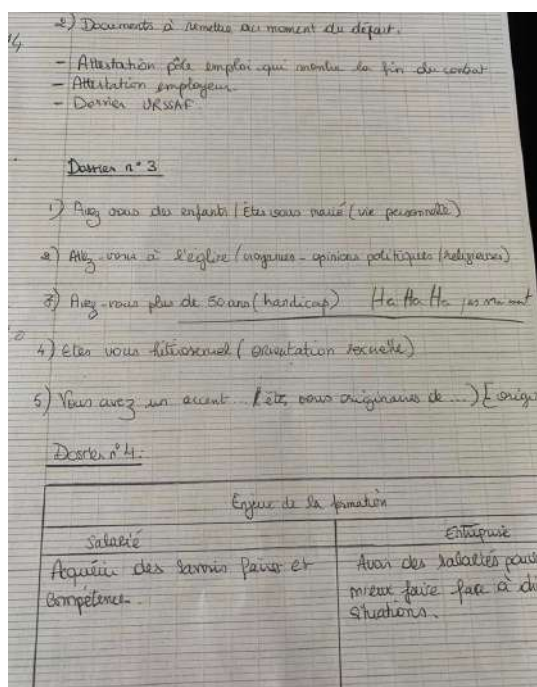 2) Documents à remettre au moment du départ.
- Attestation pôle emploi qui montre la fin du contrat
- Attestation employeur.
- Dossier URSSAF.
Dossier n°3
1) Avez vous des enfants / Êtes vous marié (vie personnelle)
2) Allez-vous à l'église (croyances - opinions politiques / religieuses)
3) Avez-vous plus de 50 ans (handicap) Ha Ha Ha
4) Etes vous hétérosexuel (orientation sexuelle)
5) Vous avez un accent... / êtes vous originaires de ...) [origi
Dossier n°4:
Enjeux de la formation
Salarié
Entreprise
Acquérir des savoirs faires et
compétence.
Avoir des salariés
mieux faire face à
situations.